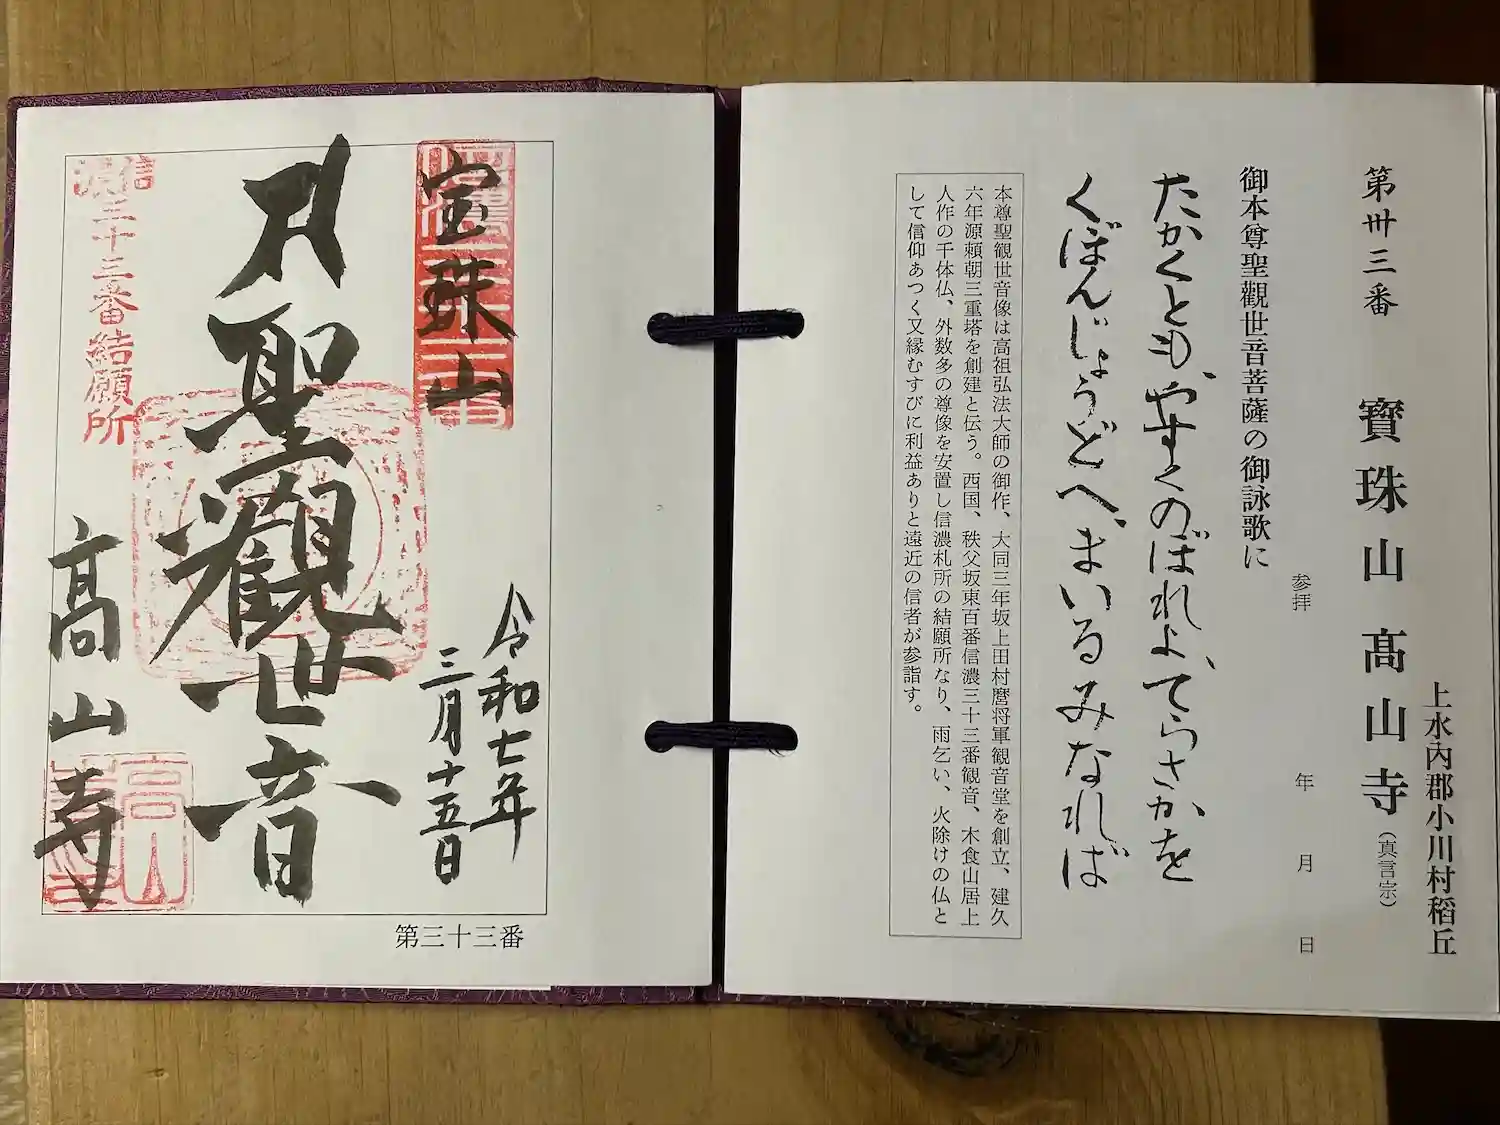 上水内郡小川村稲丘
第卅三番 寶珠山 髙山寺 (真言宗)
参拝 年 月 日
御本尊聖觀世音菩薩の御詠歌に
たかくとも、やすくのぼれよ、てらさかを
くぼんじょうどへ、まいるみなれば
本尊聖観世音像は高祖弘法大師の御作、大同三年坂上田村麿将軍観音堂を創立、建久
六年源頼朝三重塔を創建と伝う。西国、秩父坂東百番信濃三十三番観音、木食山居上
人作の千体仏、外数多の尊像を安置し信濃札所の結願所なり、雨乞い、火除けの仏と
して信仰あつく又縁むすびに利益ありと遠近の信者が参詣す。
宝珠山
令和七年
三月十五日
聖觀世音
髙山寺
信濃三十三番結願所
第三十三番